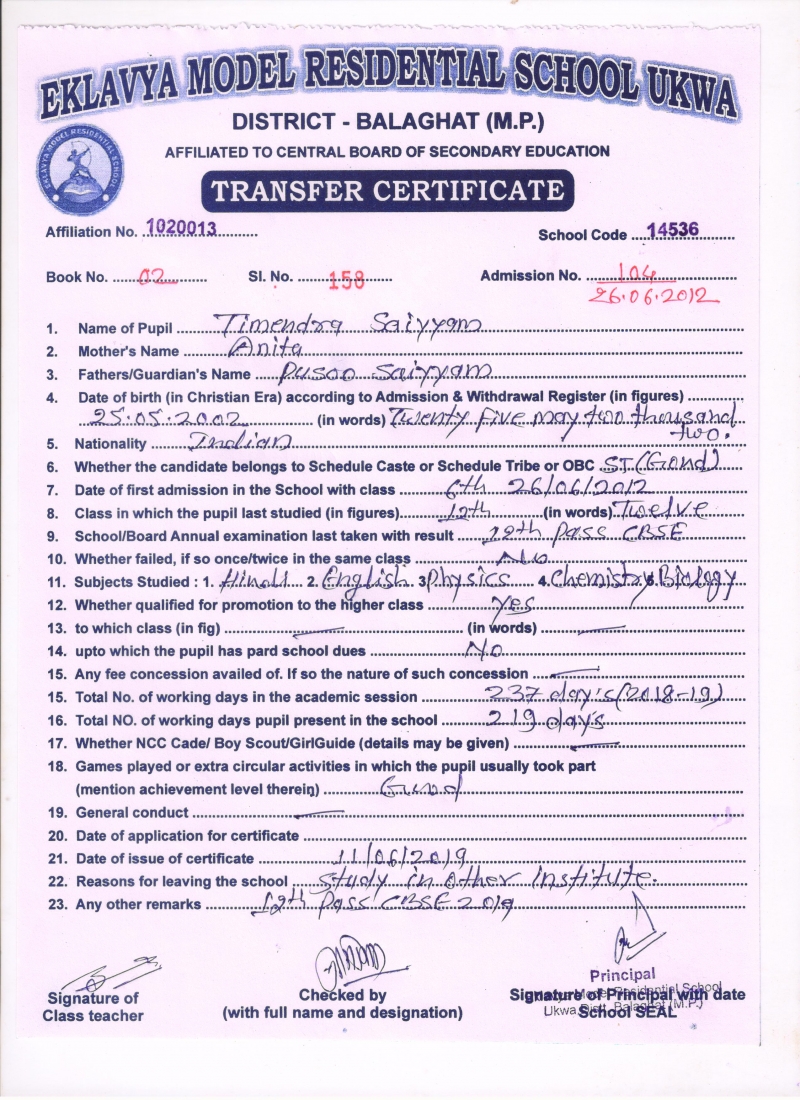 EKLAVYA MODEL RESIDENTIAL SCHOOL UKWA
DISTRICT - BALAGHAT (M.P.)
EKLAVYA MODEL RESIDENTIAL SCHOOL
AFFILIATED TO CENTRAL BOARD OF SECONDARY EDUCATION
TRANSFER CERTIFICATE
Affiliation No. 1020013
School Code 14536
Book No. 02 Sl. No. 158 Admission No. 104
26.06.2012
1. Name of Pupil Timendra Saiyyam
2. Mother's Name Anita
3. Fathers/Guardian's Name Pusoo Saiyyam
4. Date of birth (in Christian Era) according to Admission & Withdrawal Register (in figures)
25.05.2002 (in words) Twenty five may two thousand
two.
5. Nationality Indian
6. Whether the candidate belongs to Schedule Caste or Schedule Tribe or OBC ST (Gond)
7. Date of first admission in the School with class 6th 26/06/2012
8. Class in which the pupil last studied (in figures) 12th (in words) Twelve
9. School/Board Annual examination last taken with result 12th Pass CBSE
10. Whether failed, if so once/twice in the same class No
11. Subjects Studied : 1. Hindi 2. English 3 Physics 4. Chemistry 5. Biology
12. Whether qualified for promotion to the higher class yes
13. to which class (in fig) — (in words) —
14. upto which the pupil has pard school dues No
15. Any fee concession availed of. If so the nature of such concession —
15. Total No. of working days in the academic session 237 day's (2018-19)
16. Total NO. of working days pupil present in the school 219 days
17. Whether NCC Cade/ Boy Scout/GirlGuide (details may be given) —
18. Games played or extra circular activities in which the pupil usually took part
(mention achievement level therein)
19. General conduct —
20. Date of application for certificate
21. Date of issue of certificate 11/06/2019
22. Reasons for leaving the school study in other institute.
23. Any other remarks 12th Pass CBSE 2019
Principal
Signature of Class teacher
Checked by
(with full name and designation)
Signature of Principal with date
Model Residential School
Ukwa Distt. Balaghat (M.P.)
School SEAL